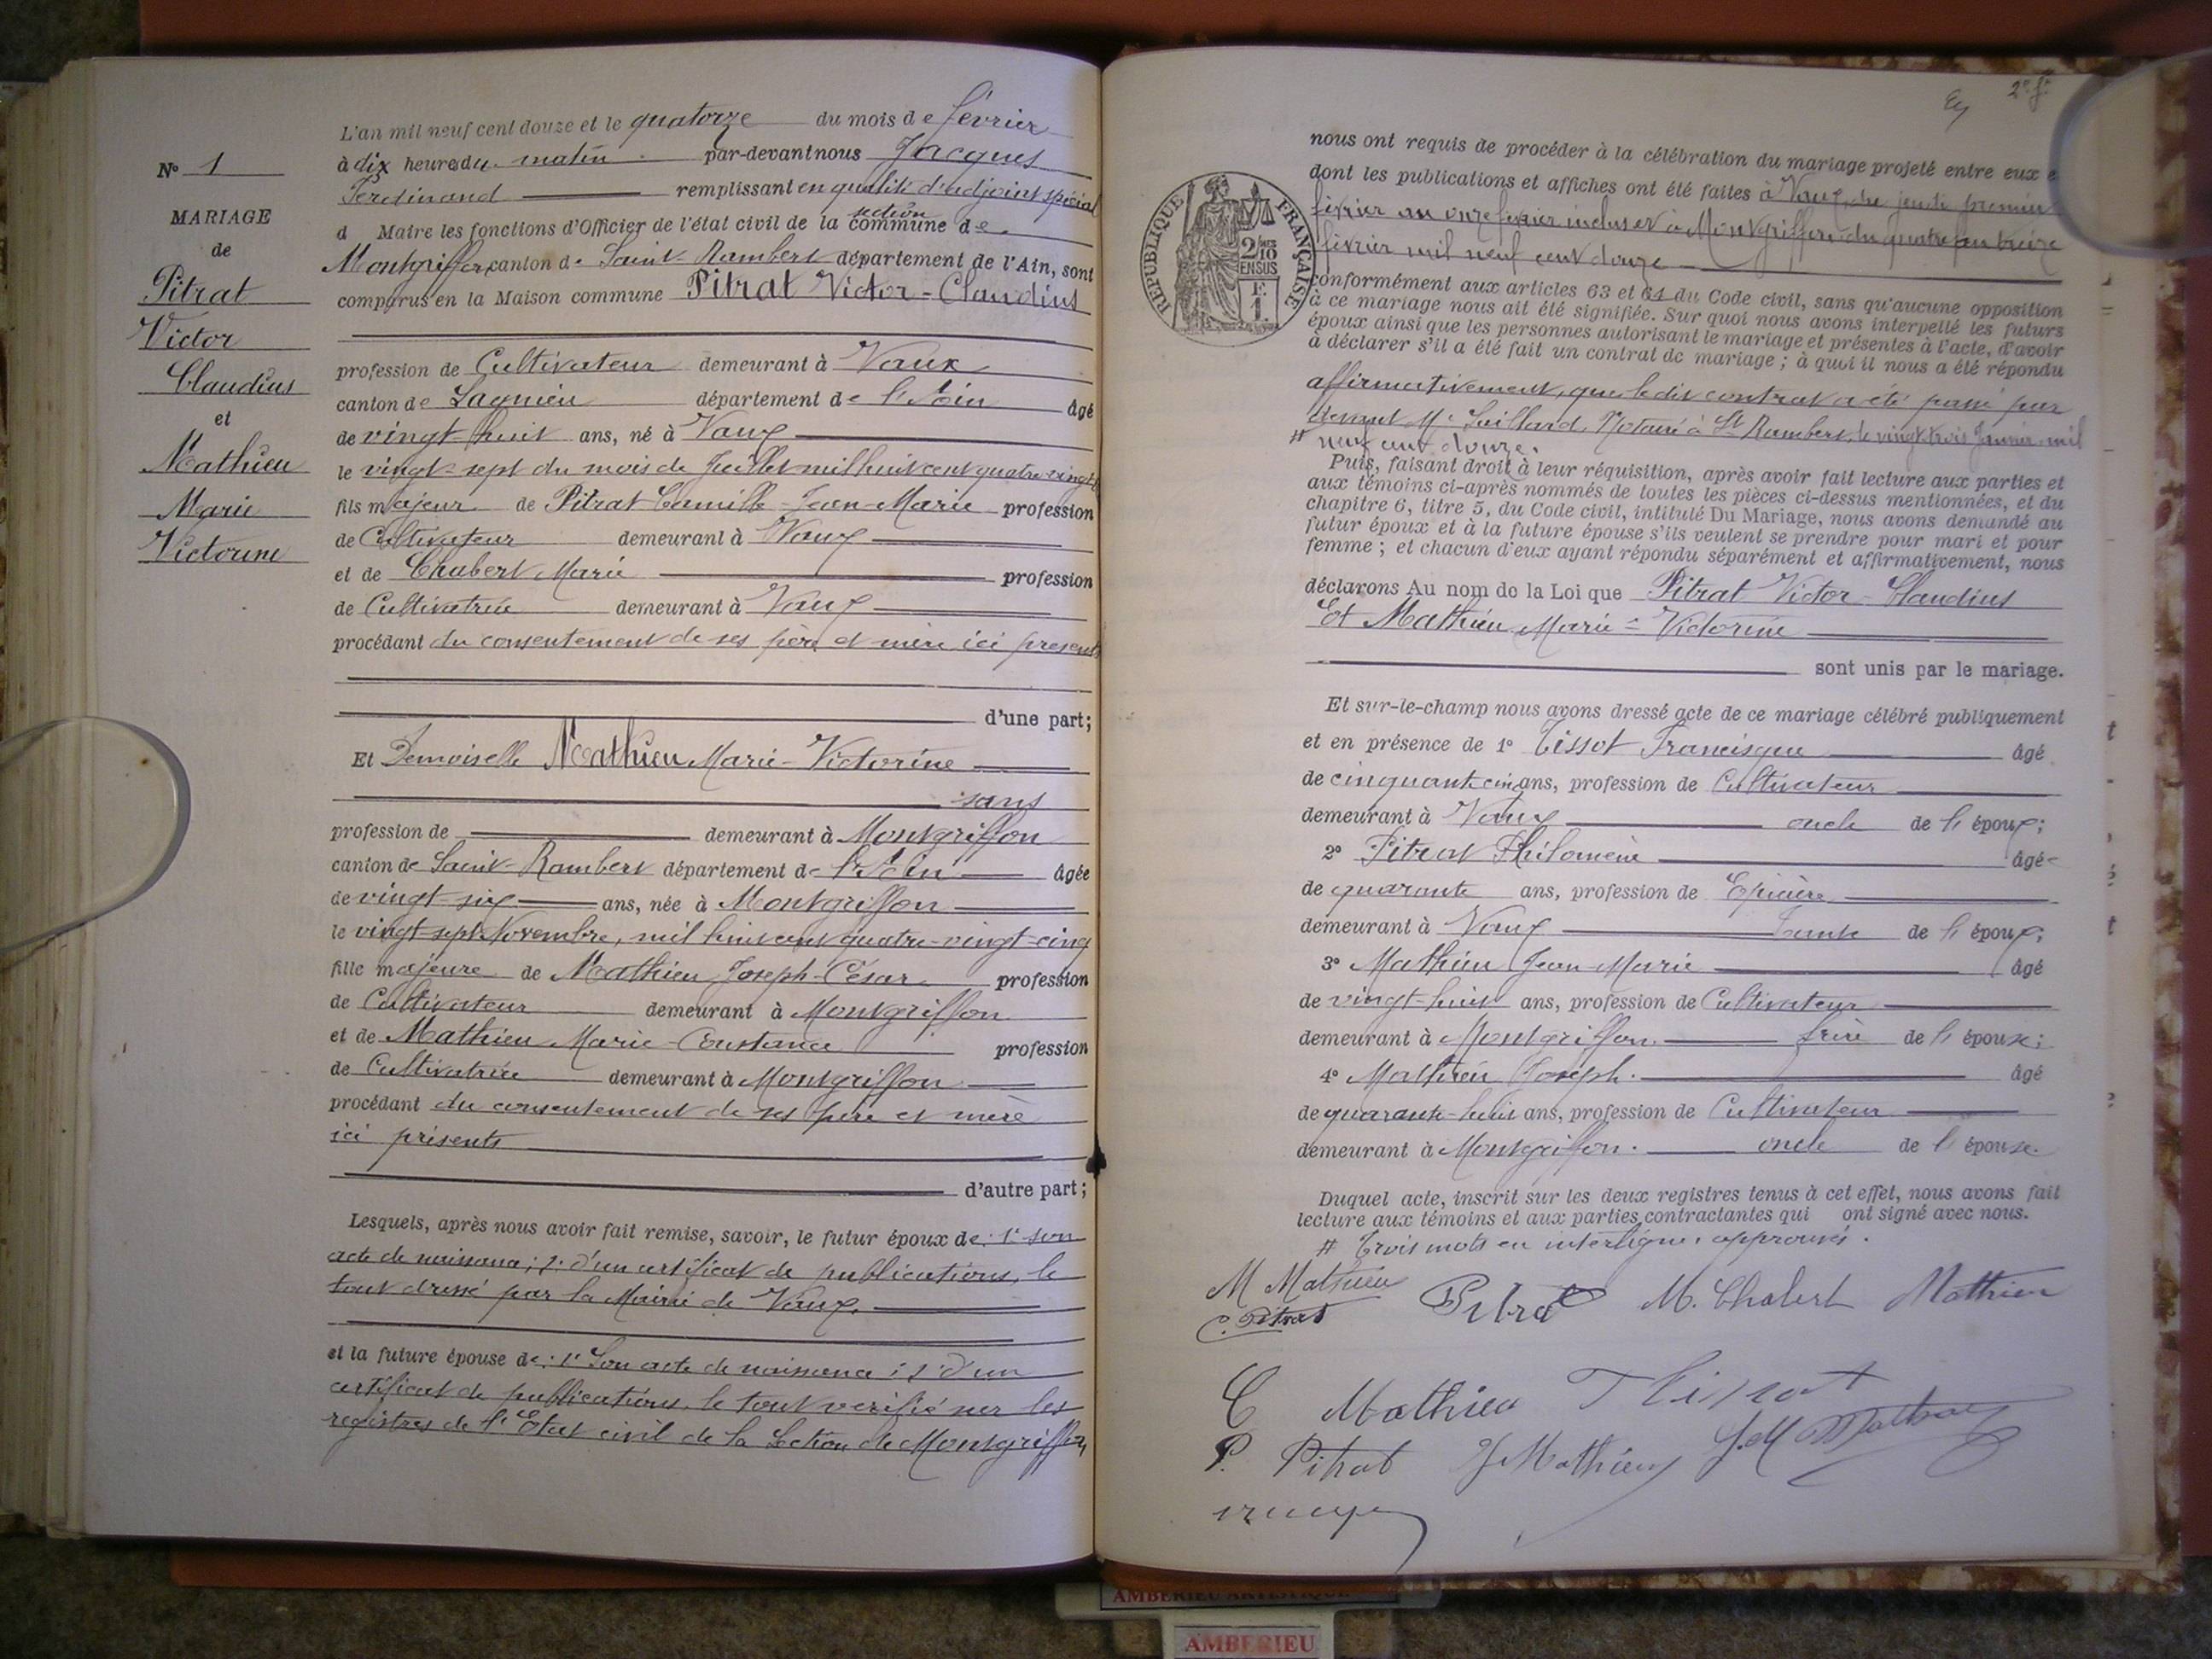 L'an mil neuf cent douze et le quatorze du mois de février
à dix heures du matin par-devant nous Jacques
Ferdinand remplissant en qualité d'adjoint spécial
section
d Maire les fonctions d'Officier de l'état civil de la commune de
Montgriffon canton de Saint-Rambert département de l'Ain, sont
comparus en la Maison commune Pitrat Victor-Claudius
profession de Cultivateur demeurant à Vaux
canton de Lagnieu département de l'Ain âgé
de vingt-huit ans, né à Vaux
le vingt-sept du mois de Juillet mil huit cent quatre-vingt
fils majeur de Pitrat Camille-Jean-Marie profession
de Cultivateur demeurant à Vaux
et de Chabert Marie profession
de Cultivatrice demeurant à Vaux
procédant du consentement de ses père et mère ici présents
d'une part;
Et Demoiselle Mathieu Marie-Victorine
sans
profession de demeurant à Montgriffon
canton de Saint-Rambert département de l'Ain âgée
de vingt-six ans, née à Montgriffon
le vingt-sept Novembre, mil huit cent quatre-vingt-cinq
fille majeure de Mathieu Joseph-César profession
de Cultivateur demeurant à Montgriffon
et de Mathieu Marie-Constance profession
de Cultivatrice demeurant à Montgriffon
procédant du consentement de ses père et mère
ici présents
d'autre part;
Lesquels, après nous avoir fait remise, savoir, le futur époux de: 1° son
acte de naissance; 2° d'un certificat de publications, le
tout dressé par la Mairie de Vaux.
et la future épouse de: 1° Son acte de naissance; 2° d'un
certificat de publications, le tout vérifié sur les
registres de l'Etat civil de la Section de Montgriffon
N° 1
MARIAGE
de
Pitrat
Victor
Claudius
et
Mathieu
Marie
Victorine
2e ft
nous ont requis de procéder à la célébration du mariage projeté entre eux e
dont les publications et affiches ont été faites à Vaux, du jeudi premier
février au onze février inclus et à Montgriffon du quatre au treize
février mil neuf cent douze
RÉPUBLIQUE FRANÇAISE
2/10
EN SUS
F.
1.
conformément aux articles 63 et 64 du Code civil, sans qu'aucune opposition
à ce mariage nous ait été signifiée. Sur quoi nous avons interpellé les futurs
époux ainsi que les personnes autorisant le mariage et présentes à l'acte, d'avoir
à déclarer s'il a été fait un contrat de mariage; à quoi il nous a été répondu
affirmativement, que le dit contrat a été passé par
devant Me Notaire à St Rambert, le vingt trois Janvier mil
# neuf cent douze.
Puis, faisant droit à leur réquisition, après avoir fait lecture aux parties et
aux témoins ci-après nommés de toutes les pièces ci-dessus mentionnées, et du
chapitre 6, titre 5, du Code civil, intitulé Du Mariage, nous avons demandé au
futur époux et à la future épouse s'ils veulent se prendre pour mari et pour
femme; et chacun d'eux ayant répondu séparément et affirmativement, nous
déclarons Au nom de la Loi que Pitrat Victor-Claudius
Et Mathieu Marie-Victorine
sont unis par le mariage.
Et sur-le-champ nous avons dressé acte de ce mariage célébré publiquement
et en présence de 1° Tissot Francisque âgé
de cinquante cinq ans, profession de Cultivateur
demeurant à Vaux oncle de l'époux;
2° Pitrat Philomène âgée
de quarante ans, profession de Epicière
demeurant à Vaux Tante de l'époux;
3° Mathieu Jean-Marie âgé
de vingt-huit ans, profession de Cultivateur
demeurant à Montgriffon. frère de l'épouse;
4° Mathieu Joseph. âgé
de quarante-huit ans, profession de Cultivateur
demeurant à Montgriffon. oncle de l'épouse.
Duquel acte, inscrit sur les deux registres tenus à cet effet, nous avons fait
lecture aux témoins et aux parties contractantes qui ont signé avec nous.
# Trois mots en interligne approuvés.
M Mathieu Pitrat M. Chabert Mathieu
C. Pitrat
C Mathieu
P. Pitrat J Mathieu J.M Mathieu
AMBERIEU ARTISTIQUE
AMBERIEU